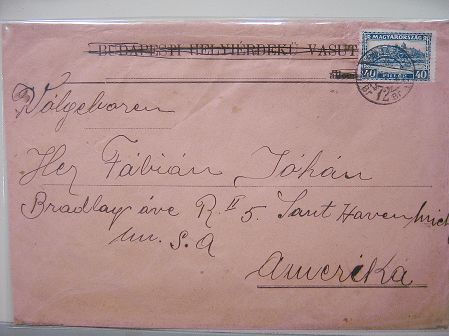 BUDAPESTI HELYIÉRDEKŰ VASUT
MAGYARORSZÁG
40 FILLÉR 40
12
Válgeboren
Her Fábián Jóhán
Bradlay áve R. II 5. Sant Haven, mich
un. S. A
Amerika